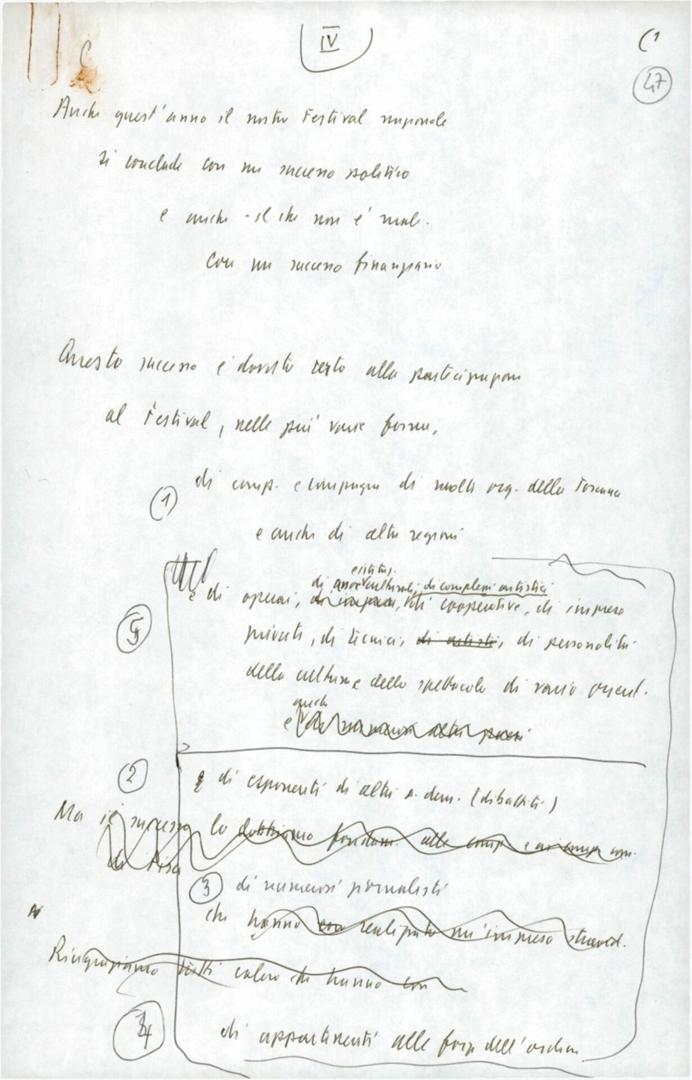 IV
47
Anche quest'anno il nostro Festival nazionale
si conclude con un successo politico
e anche - il che non è male.
con un successo finanziario
Questo successo è dovuto certo alla partecipazione
al Festival, nelle più varie forme,
1 di comp. e compagni di molte org. della Toscana
e anche di altre regioni
di culturali, di complessi artistici
5 e di operai, di cooperative, di imprese
private, di tecnici, di artisti, di personalità
della cultura e dello spettacolo di vario orient.
e anche
2 e di esponenti di altri p. dem. (dibattiti)
Ma il successo lo dobbiamo
di Pisa
3 di numerosi giornalisti
che hanno realizzato un'impresa straord.
Ringraziamo tutti coloro che hanno con
4 di appartenenti alle forze dell'ordine